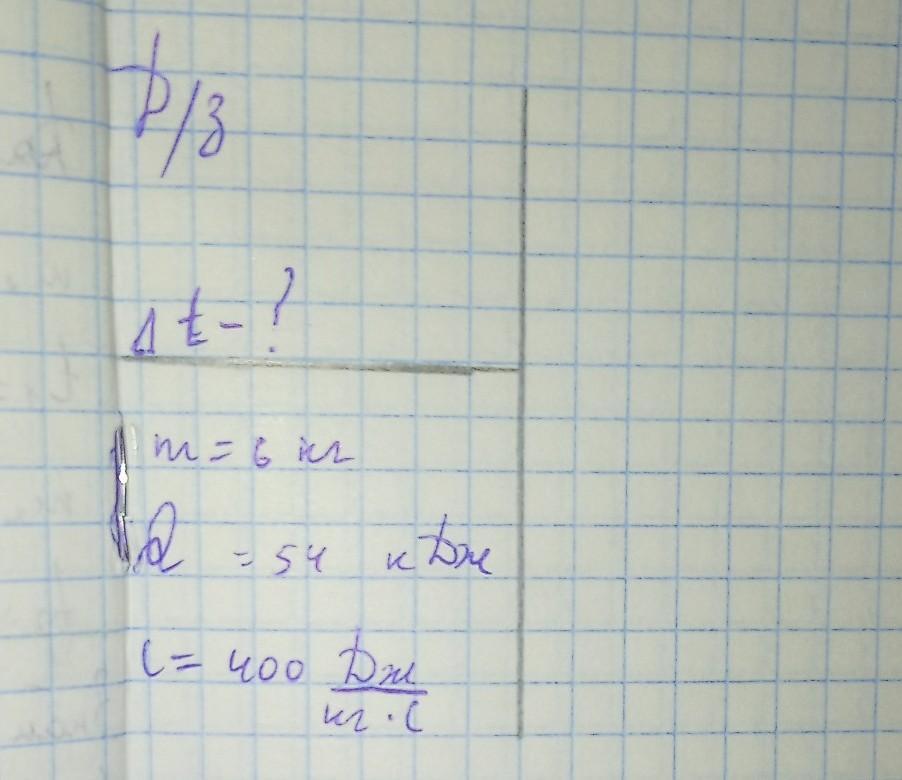 D/з
Δt - ?
m = 6 кг
Q = 54 кДж
c = 400 Дж
кг · C